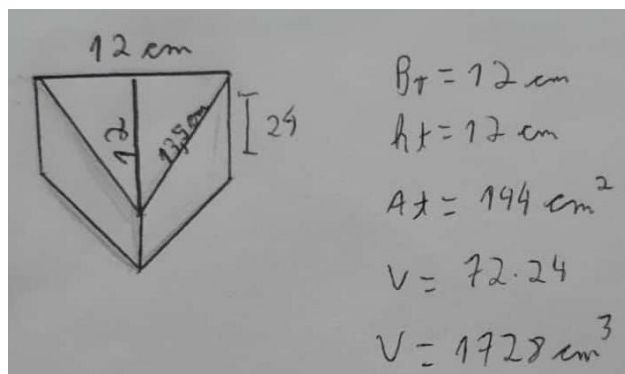 12 cm
12
13,5 cm
24
BT = 12 cm
ht = 12 cm
At = 144 cm²
V = 72.24
V = 1728 cm³